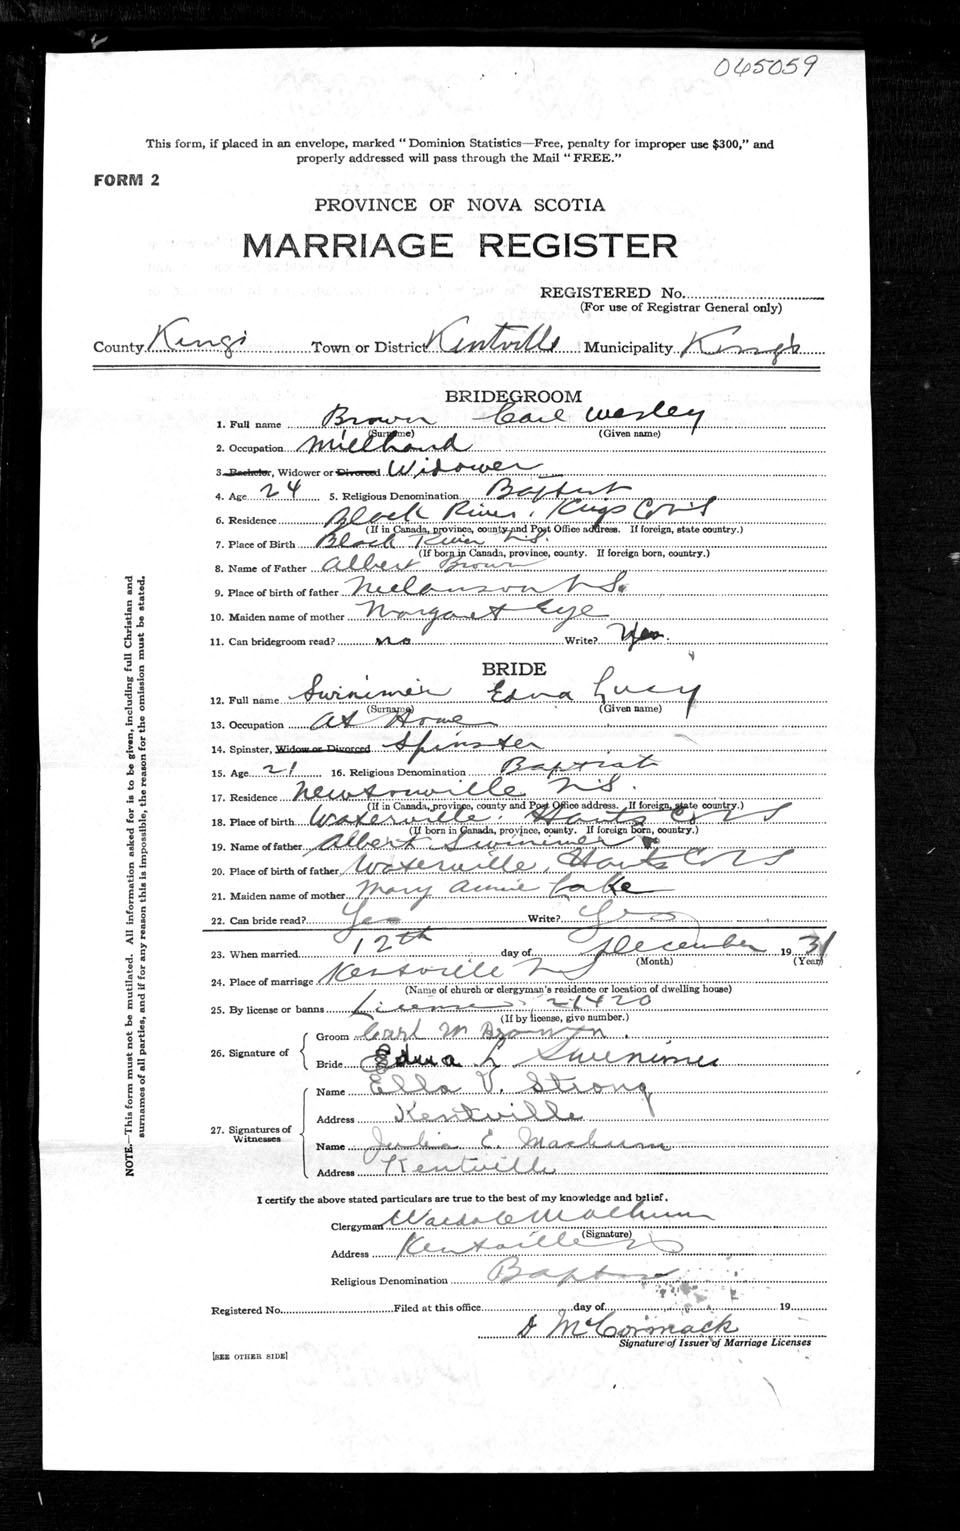 065059
This form, if placed in an envelope, marked "Dominion Statistics—Free, penalty for improper use $300," and
properly addressed will pass through the Mail "FREE."
FORM 2
PROVINCE OF NOVA SCOTIA
MARRIAGE REGISTER
REGISTERED No.
(For use of Registrar General only)
County Kings Town or District Kentville Municipality Kings
BRIDEGROOM
1. Full name Brown Carl Wesley
(Surname) (Given name)
2. Occupation Millhand
3. Bachelor, Widower or Divorced Widower
4. Age 24 5. Religious Denomination Baptist
6. Residence Black River, Kings Co NS
(If in Canada, province, county and Post Office address. If foreign, state country.)
7. Place of Birth Black River NS.
(If born in Canada, province, county. If foreign born, country.)
8. Name of Father Albert Brown
9. Place of birth of father NS.
10. Maiden name of mother Margaret Eye
11. Can bridegroom read? no Write? Yes
BRIDE
12. Full name Swinimer Edna Lucy
(Surname) (Given name)
13. Occupation At Home
14. Spinster, Widow or Divorced Spinster
15. Age 21 16. Religious Denomination Baptist
17. Residence Newtonville NS.
(If in Canada, province, county and Post Office address. If foreign, state country.)
18. Place of birth Waterville, Hants Co NS
(If born in Canada, province, county. If foreign born, country.)
19. Name of father Albert Swinimer
20. Place of birth of father Waterville, Hants Co NS
21. Maiden name of mother Mary Annie Lake
22. Can bride read? Yes Write? Yes
23. When married 12th day of December 1931
(Month) (Year)
24. Place of marriage Kentville NS
(Name of church or clergyman's residence or location of dwelling house)
25. By license or banns License 21420
(If by license, give number.)
26. Signature of
Groom Carl W Brown
Bride Edna L Swinimer
27. Signatures of Witnesses
Name Ella V. Strong
Address Kentville
Name Julia E. Machum
Address Kentville
I certify the above stated particulars are true to the best of my knowledge and belief.
Clergyman Machum
(Signature)
Address Kentville NS
Religious Denomination Baptist
Registered No. Filed at this office day of 19
D McCormack
Signature of Issuer of Marriage Licenses
[SEE OTHER SIDE]
NOTE.—This form must not be mutilated. All information asked for is to be given, including full Christian and
surnames of all parties, and if for any reason this is impossible, the reason for the omission must be stated.